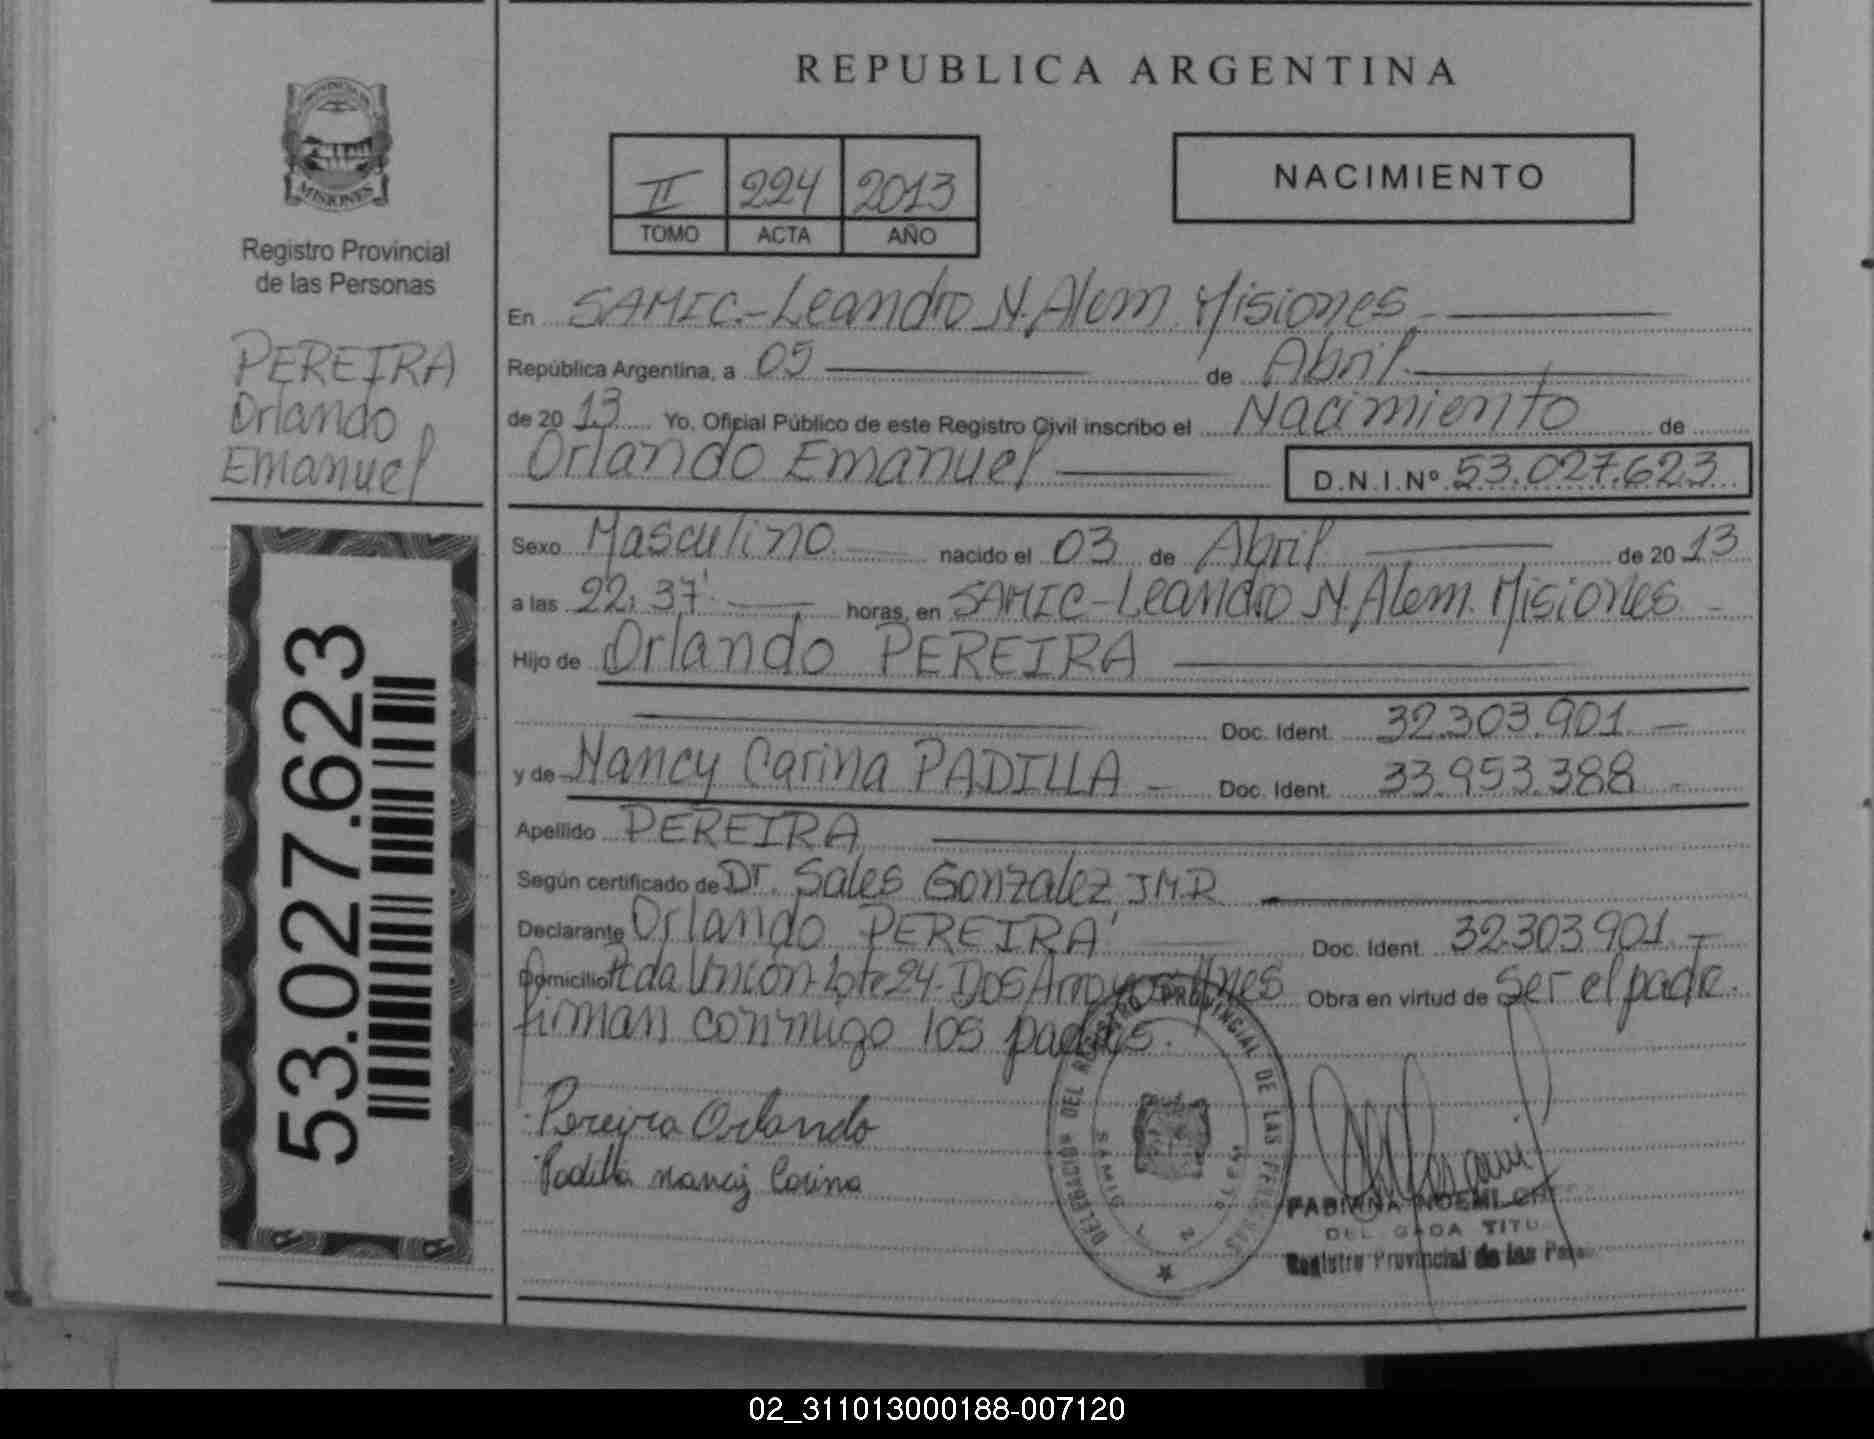 REPUBLICA ARGENTINA
PROVINCIA DE
MISIONES
Registro Provincial
de las Personas
PEREIRA
Orlando
Emanuel
53.027.623
II 224 2013
TOMO ACTA AÑO
NACIMIENTO
En SAMIC.-Leandro N. Alem. Misiones.
República Argentina, a 05 de Abril.
de 20 13 Yo, Oficial Público de este Registro Civil inscribo el Nacimiento de
Orlando Emanuel D.N.I.Nº 53.027.623
Sexo Masculino nacido el 03 de Abril de 20 13
a las 22:37' horas, en SAMIC-Leandro N. Alem. Misiones
Hijo de Orlando PEREIRA
Doc. Ident. 32.303.901.-
y de Nancy Carina PADILLA - Doc. Ident. 33.953.388 -
Apellido PEREIRA
Según certificado de Dr. Sales Gonzalez J.M.R
Declarante Orlando PEREIRA Doc. Ident. 32.303.901.-
Domicilio Pcda Unión-Lote 24-Dos Arroyos-Mnes Obra en virtud de ser el padre.
firman conmigo los padres.
Pereyra Orlando
Padilla Nancy Carina
DELEGACION DEL REGISTRO PROVINCIAL DE LAS PERSONAS
SAMIC
FABIANA NOEMI
DEL GADA TITU
Registro Provincial de las Pe
02_311013000188-007120